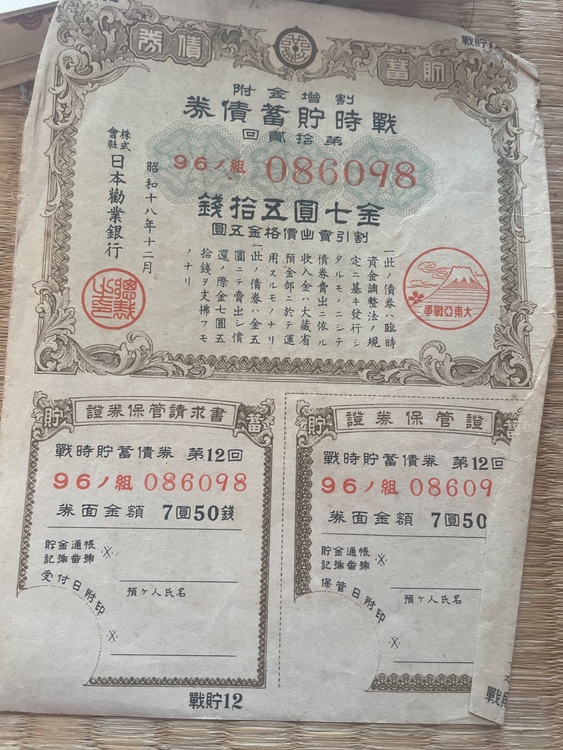 戰貯1
貯蓄債券
割増金附
戰時貯蓄債券
第拾貳回
96ノ組 086098
金七圓五拾錢
割引賣出價格金五圓
大東亞戰爭
一、此ノ債券ハ臨時
資金調整法ノ規
定ニ基キ發行シ
タルモノニシテ
債券賣出ニ依ル
收入金ハ大藏省
預金部ニ於テ運
用スルモノナリ
一、此ノ債券ハ金五
圓ニテ賣出シ償
還ノ際金七圓五
拾錢ヲ支拂フモ
ノナリ
昭和十八年十二月
株式會社日本勸業銀行
總裁之印
貯蓄
證券保管請求書
戰時貯蓄債券 第12回
96ノ組 086098
券面金額 7圓50錢
貯金通帳
記號番號 ※
預ケ人氏名
受付日附印
※
戰貯12
貯蓄
證券保管證
戰時貯蓄債券 第12回
96ノ組 08609
券面金額 7圓50
貯金通帳
記號番號 ※
預ケ人氏名
保管日附印
※
戰貯